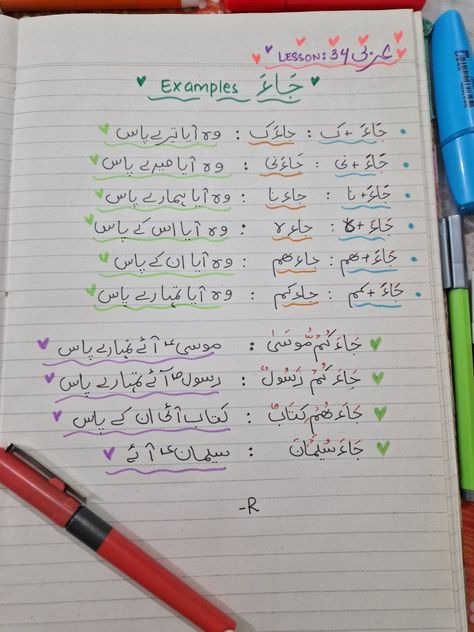 عربی LESSON: 34
جَاءَ Examples
جَاءَ + ک : جاءک : وہ آیا تیرے پاس
جَاءَ + نی : جَاءَنی : وہ آیا میرے پاس
جَاءَ + نا : جاءنا : وہ آیا ہمارے پاس
جَاءَ + ہ : جاءہ : وہ آیا اس کے پاس
جَاءَ + ھم : جاءھم : وہ آیا ان کے پاس
جَاءَ + کم : جاءکم : وہ آیا تمہارے پاس
جَاءَ كُمْ مُّوسَىٰ : موسیٰؑ آئے تمہارے پاس
جَاءَ كُمْ رَسُولٌ : رسولؐ آئے تمہارے پاس
جَاءَ هُمْ كِتَابٌ : کتاب آئی ان کے پاس
جَاءَ سُلیمَانَ : سلیمانؑ آئے
-R